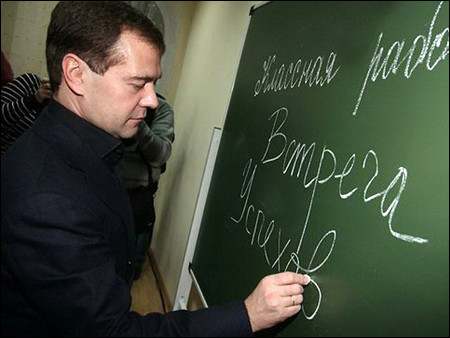 Классная рабо
Встреча
Успехов